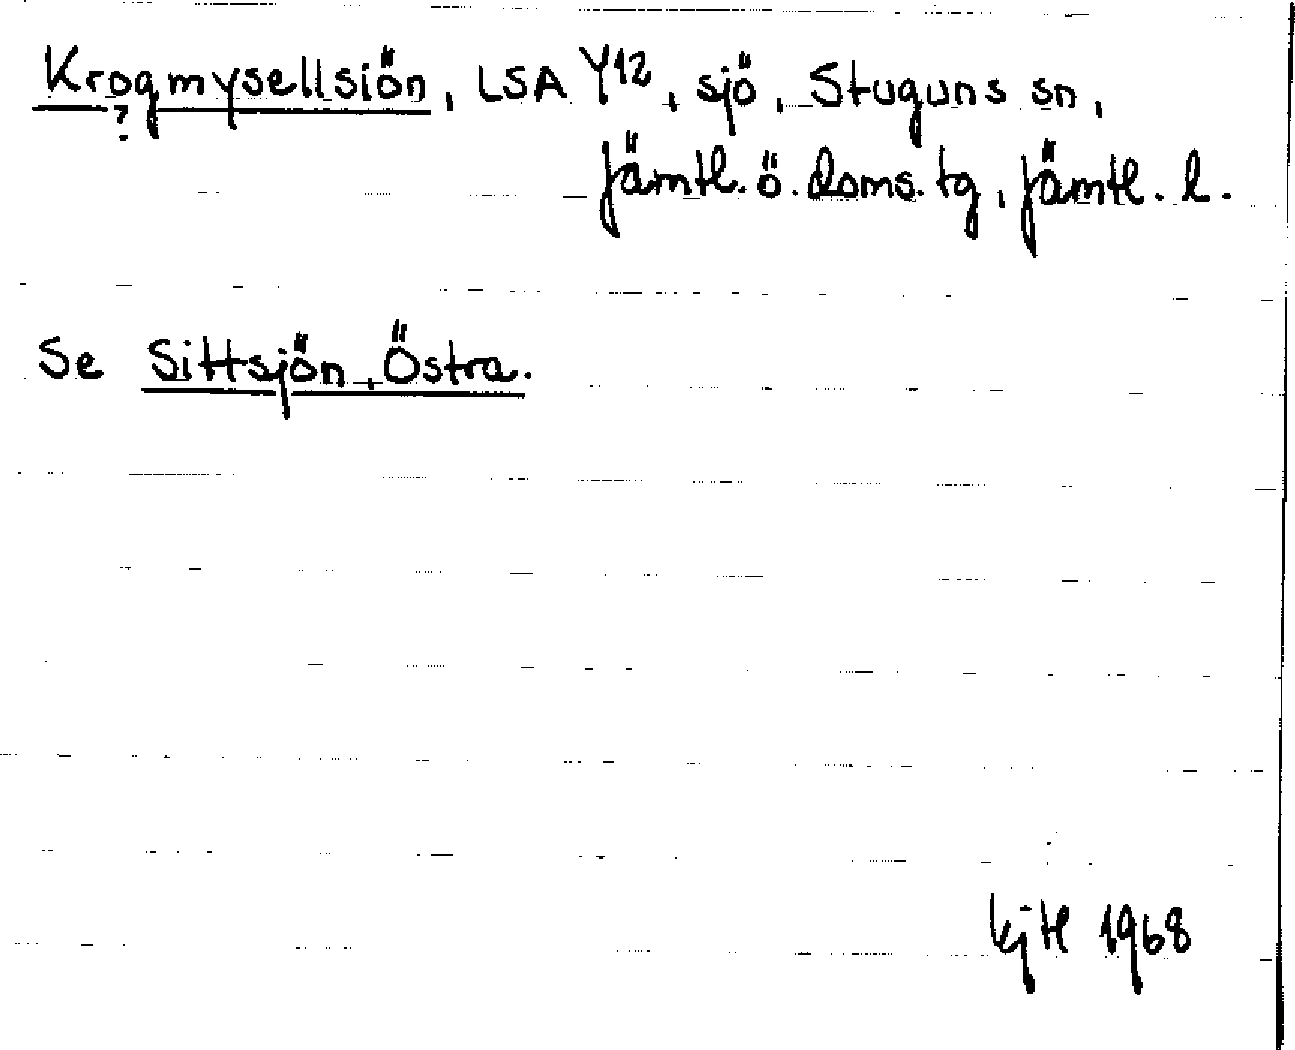 Krogmysellsiön, LSA Y12, sjö, Stuguns sn,
?
Jämtl. ö. doms. tg, Jämtl. l.
Se Sittsjön, Östra.
1968